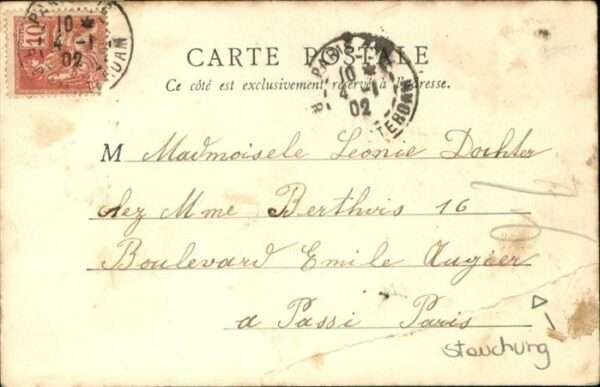 10
10
4 -1
02
CARTE POSTALE
Ce côté est exclusivement réservé à l'adresse.
PARIS
10
4 -1
02
M Madmoisele Leonie Dochter
chez Mme Berthois 16
Boulevard Emile Augier
a Passi Paris
stauchung